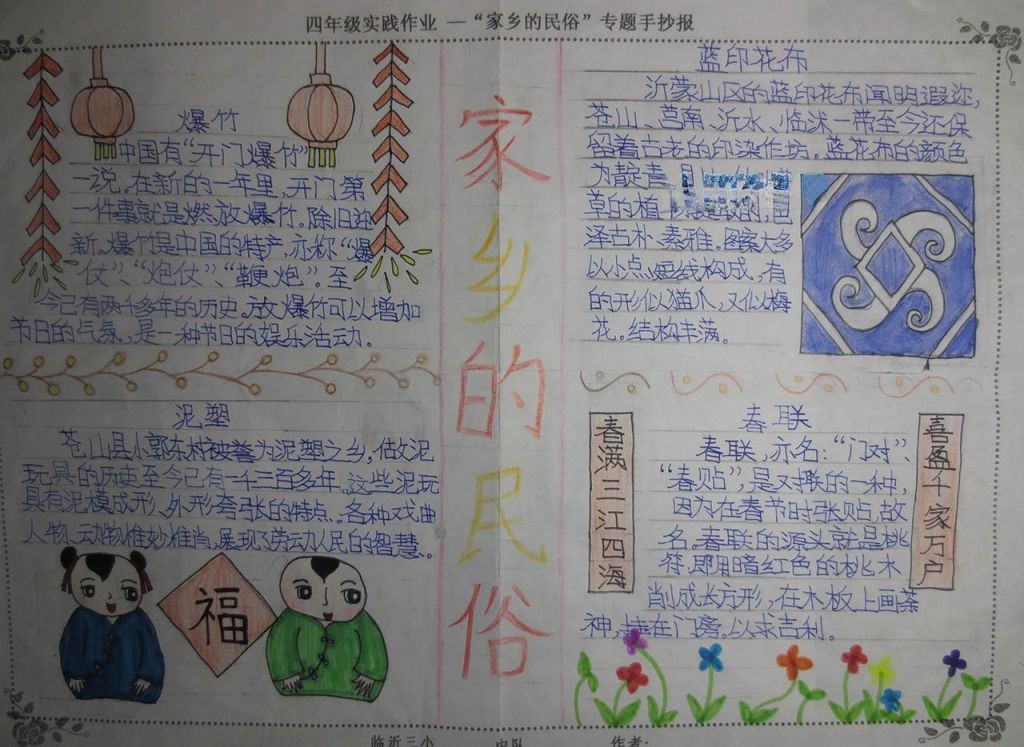 四年级实践作业 —“家乡的民俗”专题手抄报
爆竹
中国有“开门爆竹”
一说，在新的一年里，开门第
一件事就是燃放爆竹。除旧迎
新。爆竹是中国的特产，亦称“爆
仗”、“炮仗”、“鞭炮”。至
今已有两千多年的历史。放爆竹可以增加
节日的气氛，是一种节日的娱乐活动。
泥塑
苍山县小郭东村被誉为泥塑之乡，
玩具的历史至今已有一千三百多年。这些泥玩
具有泥模成形、外形夸张的特点。各种戏曲
人物、动物惟妙惟肖，展现了劳动人民的智慧。
福
家乡的民俗
蓝印花布
沂蒙山区的蓝印花布闻明遐迩，
苍山、莒南、沂水、临沭一带至今还保
留着古老的印染作坊。蓝花布的颜色
为靛青
草的植
泽古朴、素雅。图案大多
以小点、短线构成，有
的形似猫爪，又似梅
花。结构丰满。
春联
春满三江四海
春联，亦名：“门对”、
“春贴”，是对联的一种，
因为在春节时张贴，故
名。春联的源头就是桃
符，即用暗红色的桃木
削成长方形，在木板上画荼
神，挂在门旁。以求吉利。
喜盈千家万户
临沂三小 中队 作者：